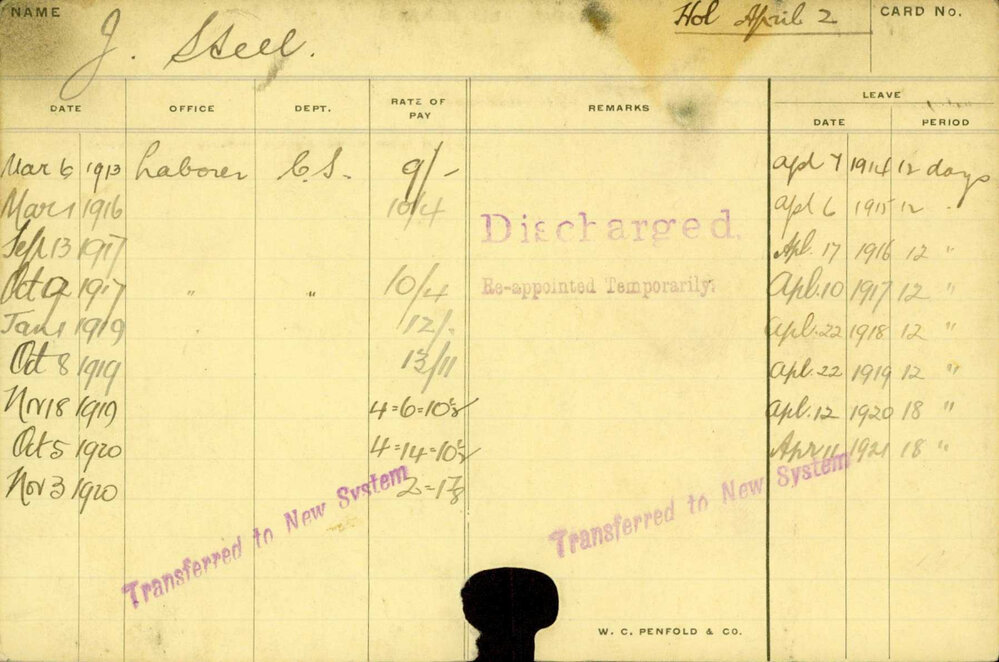 NAME J. Steel. Hol April 2 CARD No.
LEAVE
DATE OFFICE DEPT. RATE OF PAY REMARKS DATE PERIOD
Mar 6 1913 Laborer C.S. 9/- Apl 7 1914 12 days
Mar 1 1916 10/4 Apl 6 1915 12 "
Sept 13 1917 Discharged. Apl. 17 1916 12 "
Oct 9 1917 " " 10/4 Re-appointed Temporarily. Apl. 10 1917 12 "
Jan 1 1919 12/- Apl. 22 1918 12 "
Oct 8 1919 13/11 Apl. 22 1919 12 "
Nov 18 1919 4=6=10½ Apl. 12 1920 18 "
Oct 5 1920 4=14=10½ Apr 11 1921 18 "
Nov 3 1920
Transferred to New System
Transferred to New System
W. C. PENFOLD & CO.